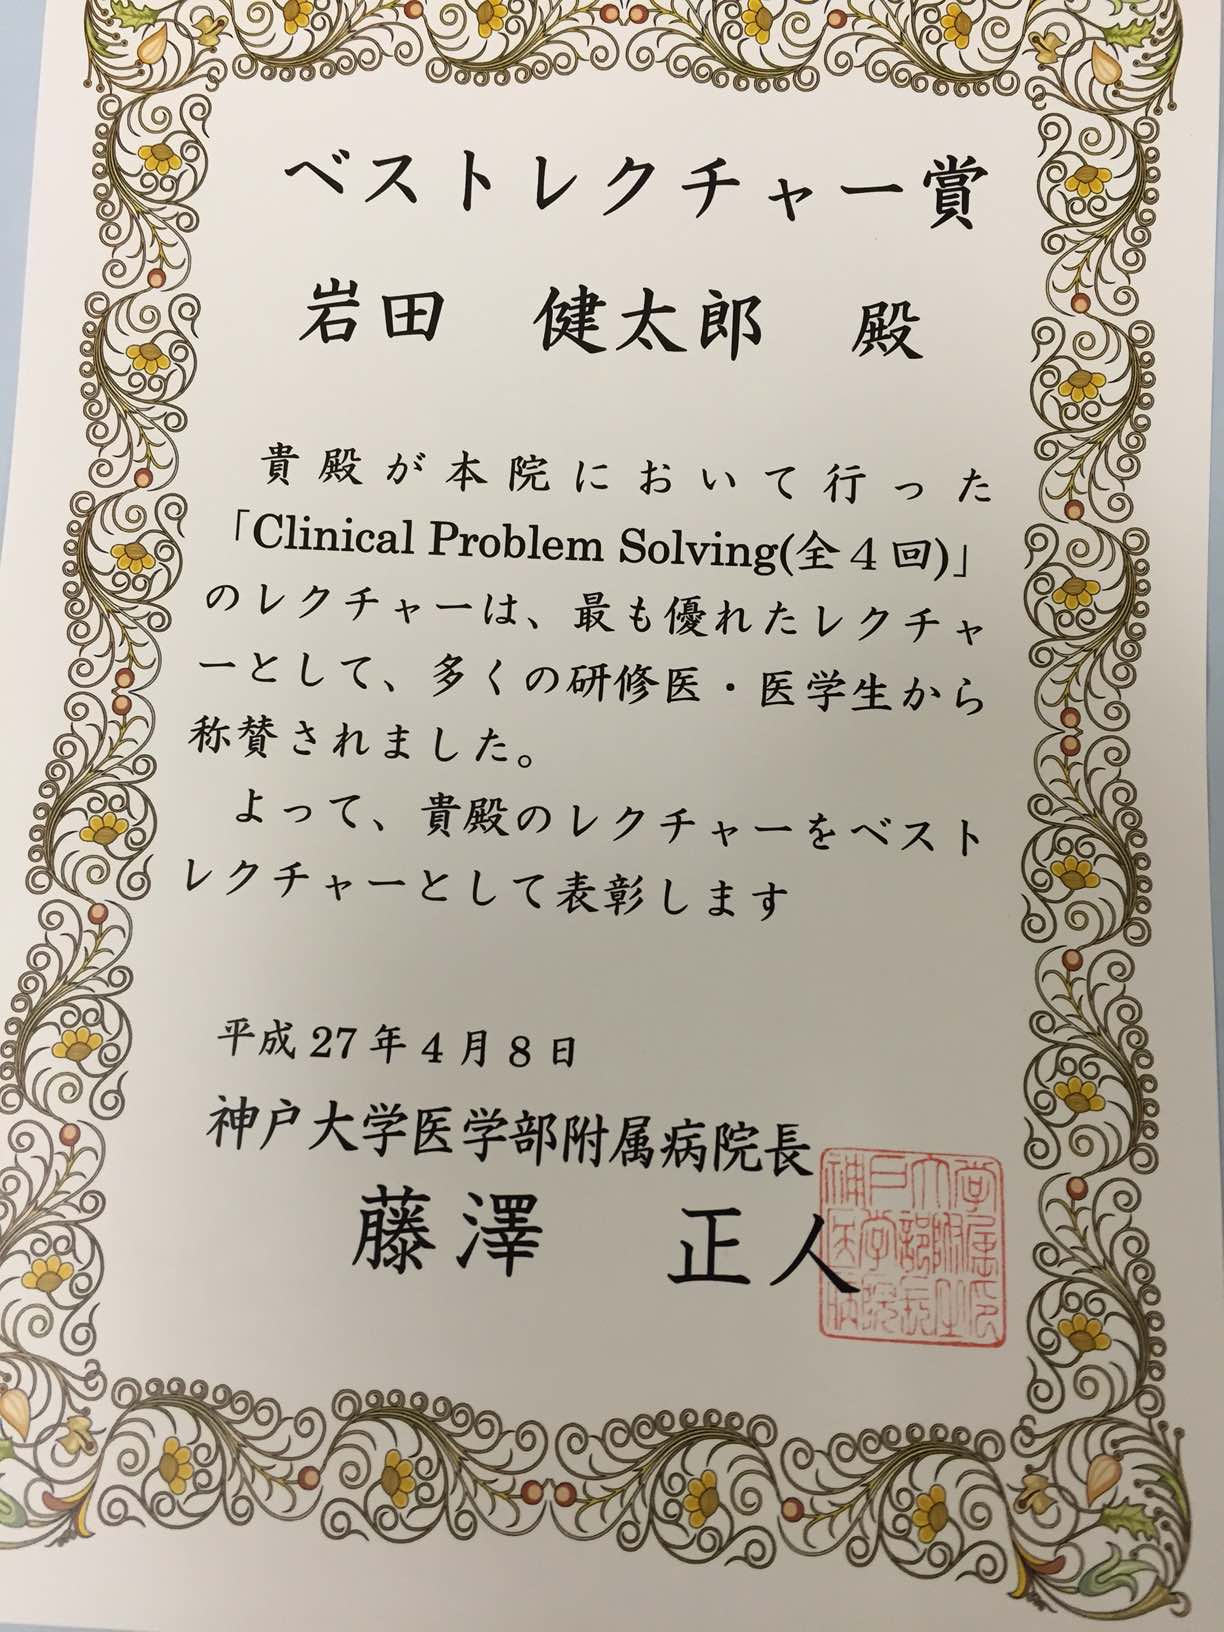 ベストレクチャー賞
岩田 健太郎 殿
貴殿が本院において行った
「Clinical Problem Solving(全４回)」
のレクチャーは、最も優れたレクチャ
ーとして、多くの研修医・医学生から
称賛されました。
よって、貴殿のレクチャーをベスト
レクチャーとして表彰します
平成 27 年 4 月 8 日
神戸大学医学部附属病院長
藤澤 正人
神戸大学
医学部附属
病院長之印